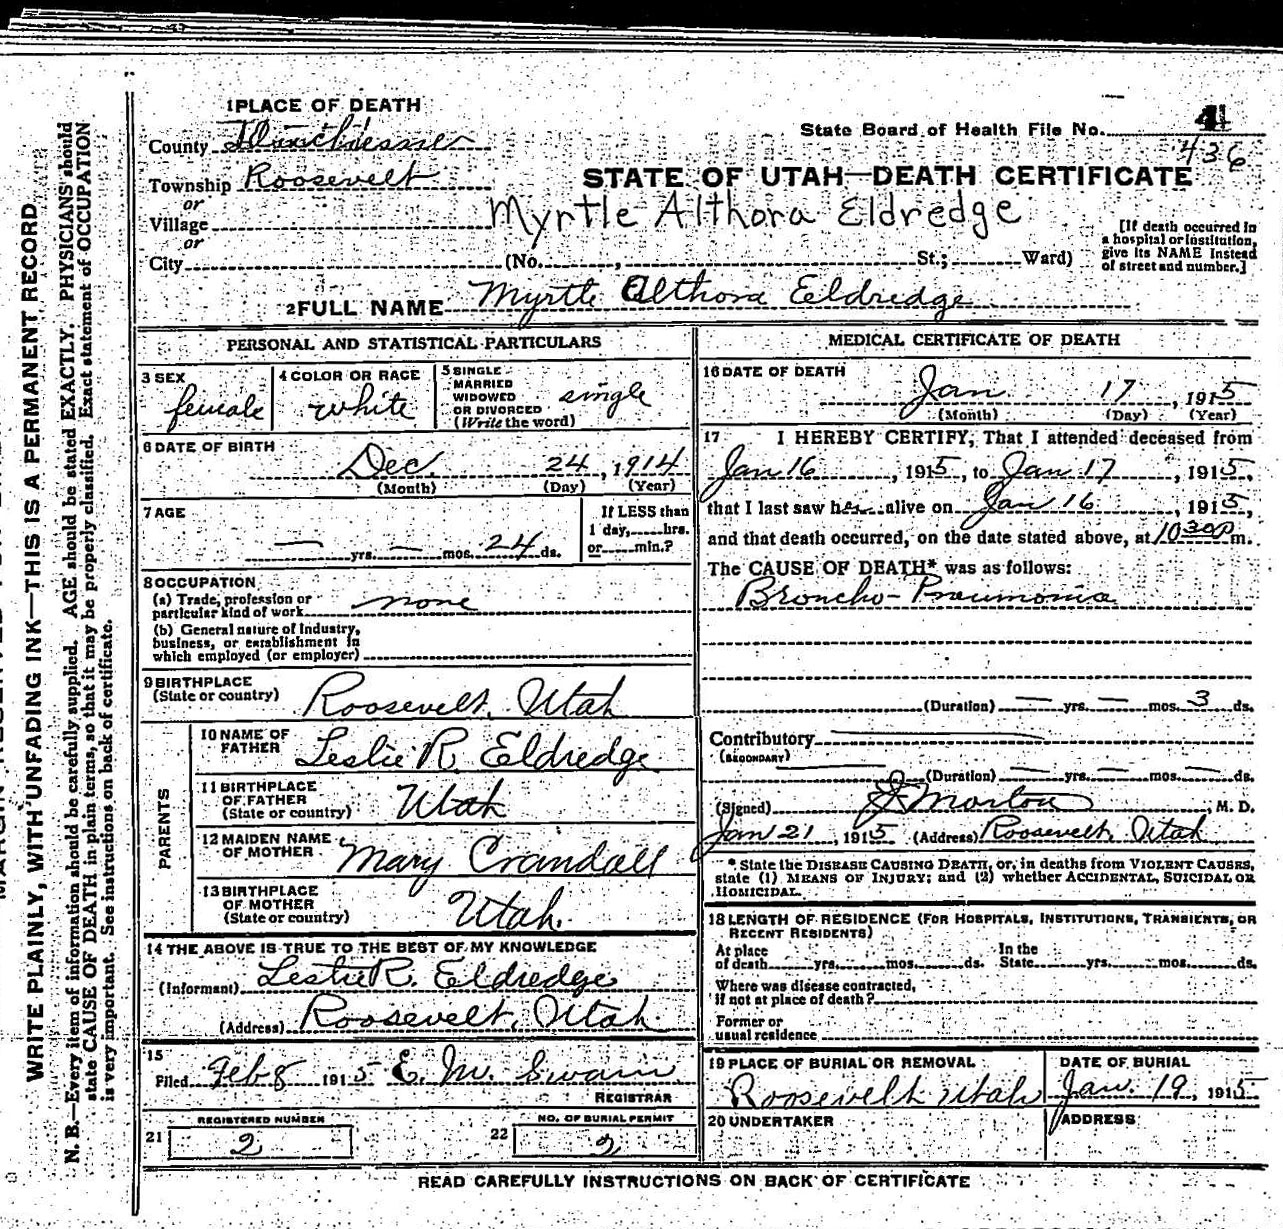 1 PLACE OF DEATH
County Duchesne
State Board of Health File No. 4
436
Township Roosevelt
or
STATE OF UTAH—DEATH CERTIFICATE
Village
Myrtle Althora Eldredge
or
City (No. , St.; Ward)
[If death occurred in
a hospital or institution,
give its NAME instead
of street and number.]
2 FULL NAME Myrtle Althora Eldredge
PERSONAL AND STATISTICAL PARTICULARS
3 SEX
female
4 COLOR OR RACE
white
5 SINGLE
MARRIED
WIDOWED
OR DIVORCED
(Write the word)
single
6 DATE OF BIRTH
Dec. 24, 1914
(Month) (Day) (Year)
7 AGE
— yrs. — mos. 24 ds.
If LESS than
1 day, hrs.
or min.?
8 OCCUPATION
(a) Trade, profession or
particular kind of work none
(b) General nature of Industry,
business, or establishment in
which employed (or employer)
9 BIRTHPLACE
(State or country) Roosevelt, Utah
PARENTS
10 NAME OF
FATHER Leslie R. Eldredge
11 BIRTHPLACE
OF FATHER
(State or country) Utah
12 MAIDEN NAME
OF MOTHER Mary Crandall
13 BIRTHPLACE
OF MOTHER
(State or country) Utah.
14 THE ABOVE IS TRUE TO THE BEST OF MY KNOWLEDGE
(Informant) Leslie R. Eldredge
(Address) Roosevelt, Utah.
15
Filed Feb 8 1915 E. M. Swain
REGISTRAR
REGISTERED NUMBER
21 2
NO. OF BURIAL PERMIT
22 2
MEDICAL CERTIFICATE OF DEATH
16 DATE OF DEATH
Jan 17, 1915
(Month) (Day) (Year)
17 I HEREBY CERTIFY, That I attended deceased from
Jan 16, 1915, to Jan 17, 1915,
that I last saw her alive on Jan 16, 1915,
and that death occurred, on the date stated above, at 10 30 P m.
The CAUSE OF DEATH* was as follows:
Broncho-Pneumonia
(Duration) — yrs. — mos. 3 ds.
Contributory
(SECONDARY)
(Duration) — yrs. — mos. — ds.
(Signed) J. Morton, M. D.
Jan 21, 1915 (Address) Roosevelt, Utah
* State the DISEASE CAUSING DEATH, or, in deaths from VIOLENT CAUSES,
state (1) MEANS OF INJURY; and (2) whether ACCIDENTAL, SUICIDAL OR
HOMICIDAL.
18 LENGTH OF RESIDENCE (FOR HOSPITALS, INSTITUTIONS, TRANSIENTS, OR
RECENT RESIDENTS)
At place In the
of death yrs. mos. ds. State yrs. mos. ds.
Where was disease contracted,
if not at place of death?
Former or
usual residence
19 PLACE OF BURIAL OR REMOVAL
Roosevelt, Utah
DATE OF BURIAL
Jan. 19, 1915
20 UNDERTAKER
ADDRESS
READ CAREFULLY INSTRUCTIONS ON BACK OF CERTIFICATE
WRITE PLAINLY, WITH UNFADING INK—THIS IS A PERMANENT RECORD
N. B.—Every item of information should be carefully supplied. AGE should be stated EXACTLY. PHYSICIANS should
state CAUSE OF DEATH in plain terms, so that it may be properly classified. Exact statement of OCCUPATION
is very important. See instructions on back of certificate.